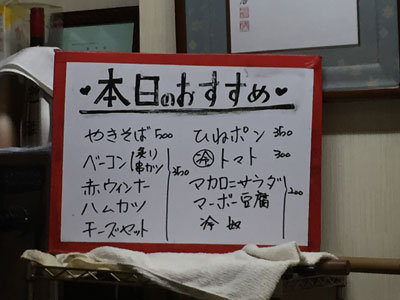 ♥本日のおすすめ♥
やきそば 500
ベーコン 炙り 串カツ
赤ウィンナー
ハムカツ
チーズセット
350
ひねポン 350
冷 トマト 300
マカロニサラダ
マーボー豆腐
冷奴
200